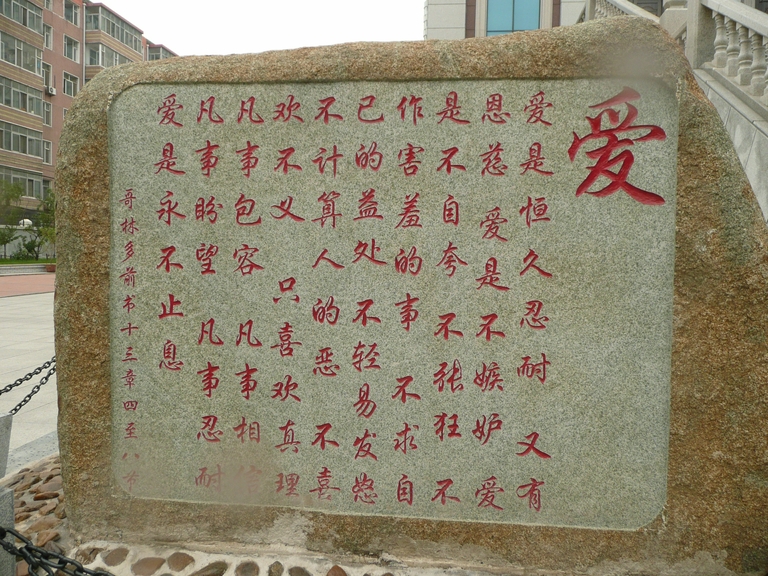 爱
爱是恒久忍耐 又有
恩慈 爱是不嫉妒 爱
是不自夸 不张狂 不
作害羞的事 不求自
己的益处 不轻易发怒
不计算人的恶 不喜
欢不义 只喜欢真理
凡事包容 凡事相信
凡事盼望 凡事忍耐
爱是永不止息
哥林多前书十三章四至八节